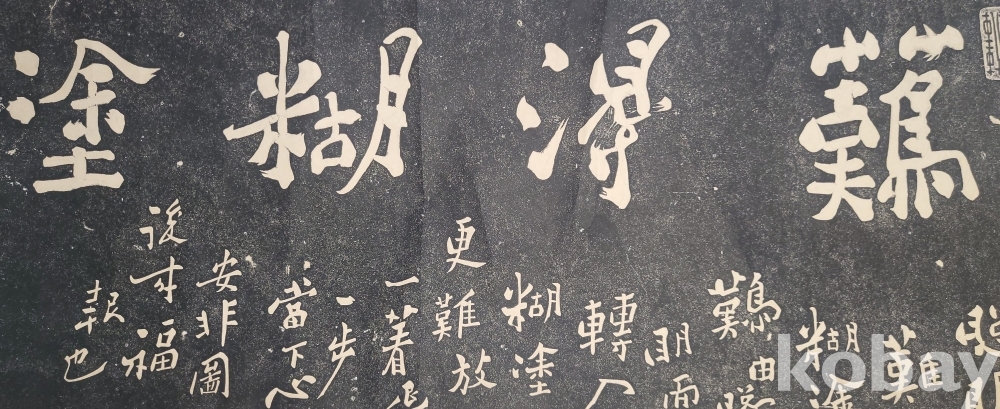 難得糊塗
聰明
難
糊塗
難由聰
明而
轉入
糊塗
更難放
一着退
一步
當下心
安非圖
後來福
報也
kobay